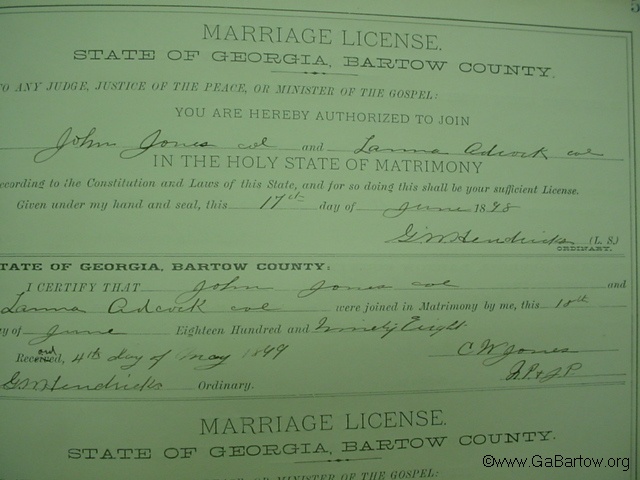 5
MARRIAGE LICENSE.
STATE OF GEORGIA, BARTOW COUNTY.
TO ANY JUDGE, JUSTICE OF THE PEACE, OR MINISTER OF THE GOSPEL:
YOU ARE HEREBY AUTHORIZED TO JOIN
John Jones col and Lanna Adcock col
IN THE HOLY STATE OF MATRIMONY
According to the Constitution and Laws of this State, and for so doing this shall be your sufficient License.
Given under my hand and seal, this 17th day of June 1898
G W Hendricks (L. S.)
ORDINARY.
STATE OF GEORGIA, BARTOW COUNTY:
I CERTIFY THAT John Jones col and
Lanna Adcock col were joined in Matrimony by me, this 18th
day of June Eighteen Hundred and Ninety Eight
Recorded, 4th day of May 1899 C W Jones
G W Hendricks Ordinary. J.P.
MARRIAGE LICENSE.
STATE OF GEORGIA, BARTOW COUNTY.
OR MINISTER OF THE GOSPEL:
©www.GaBartow.org